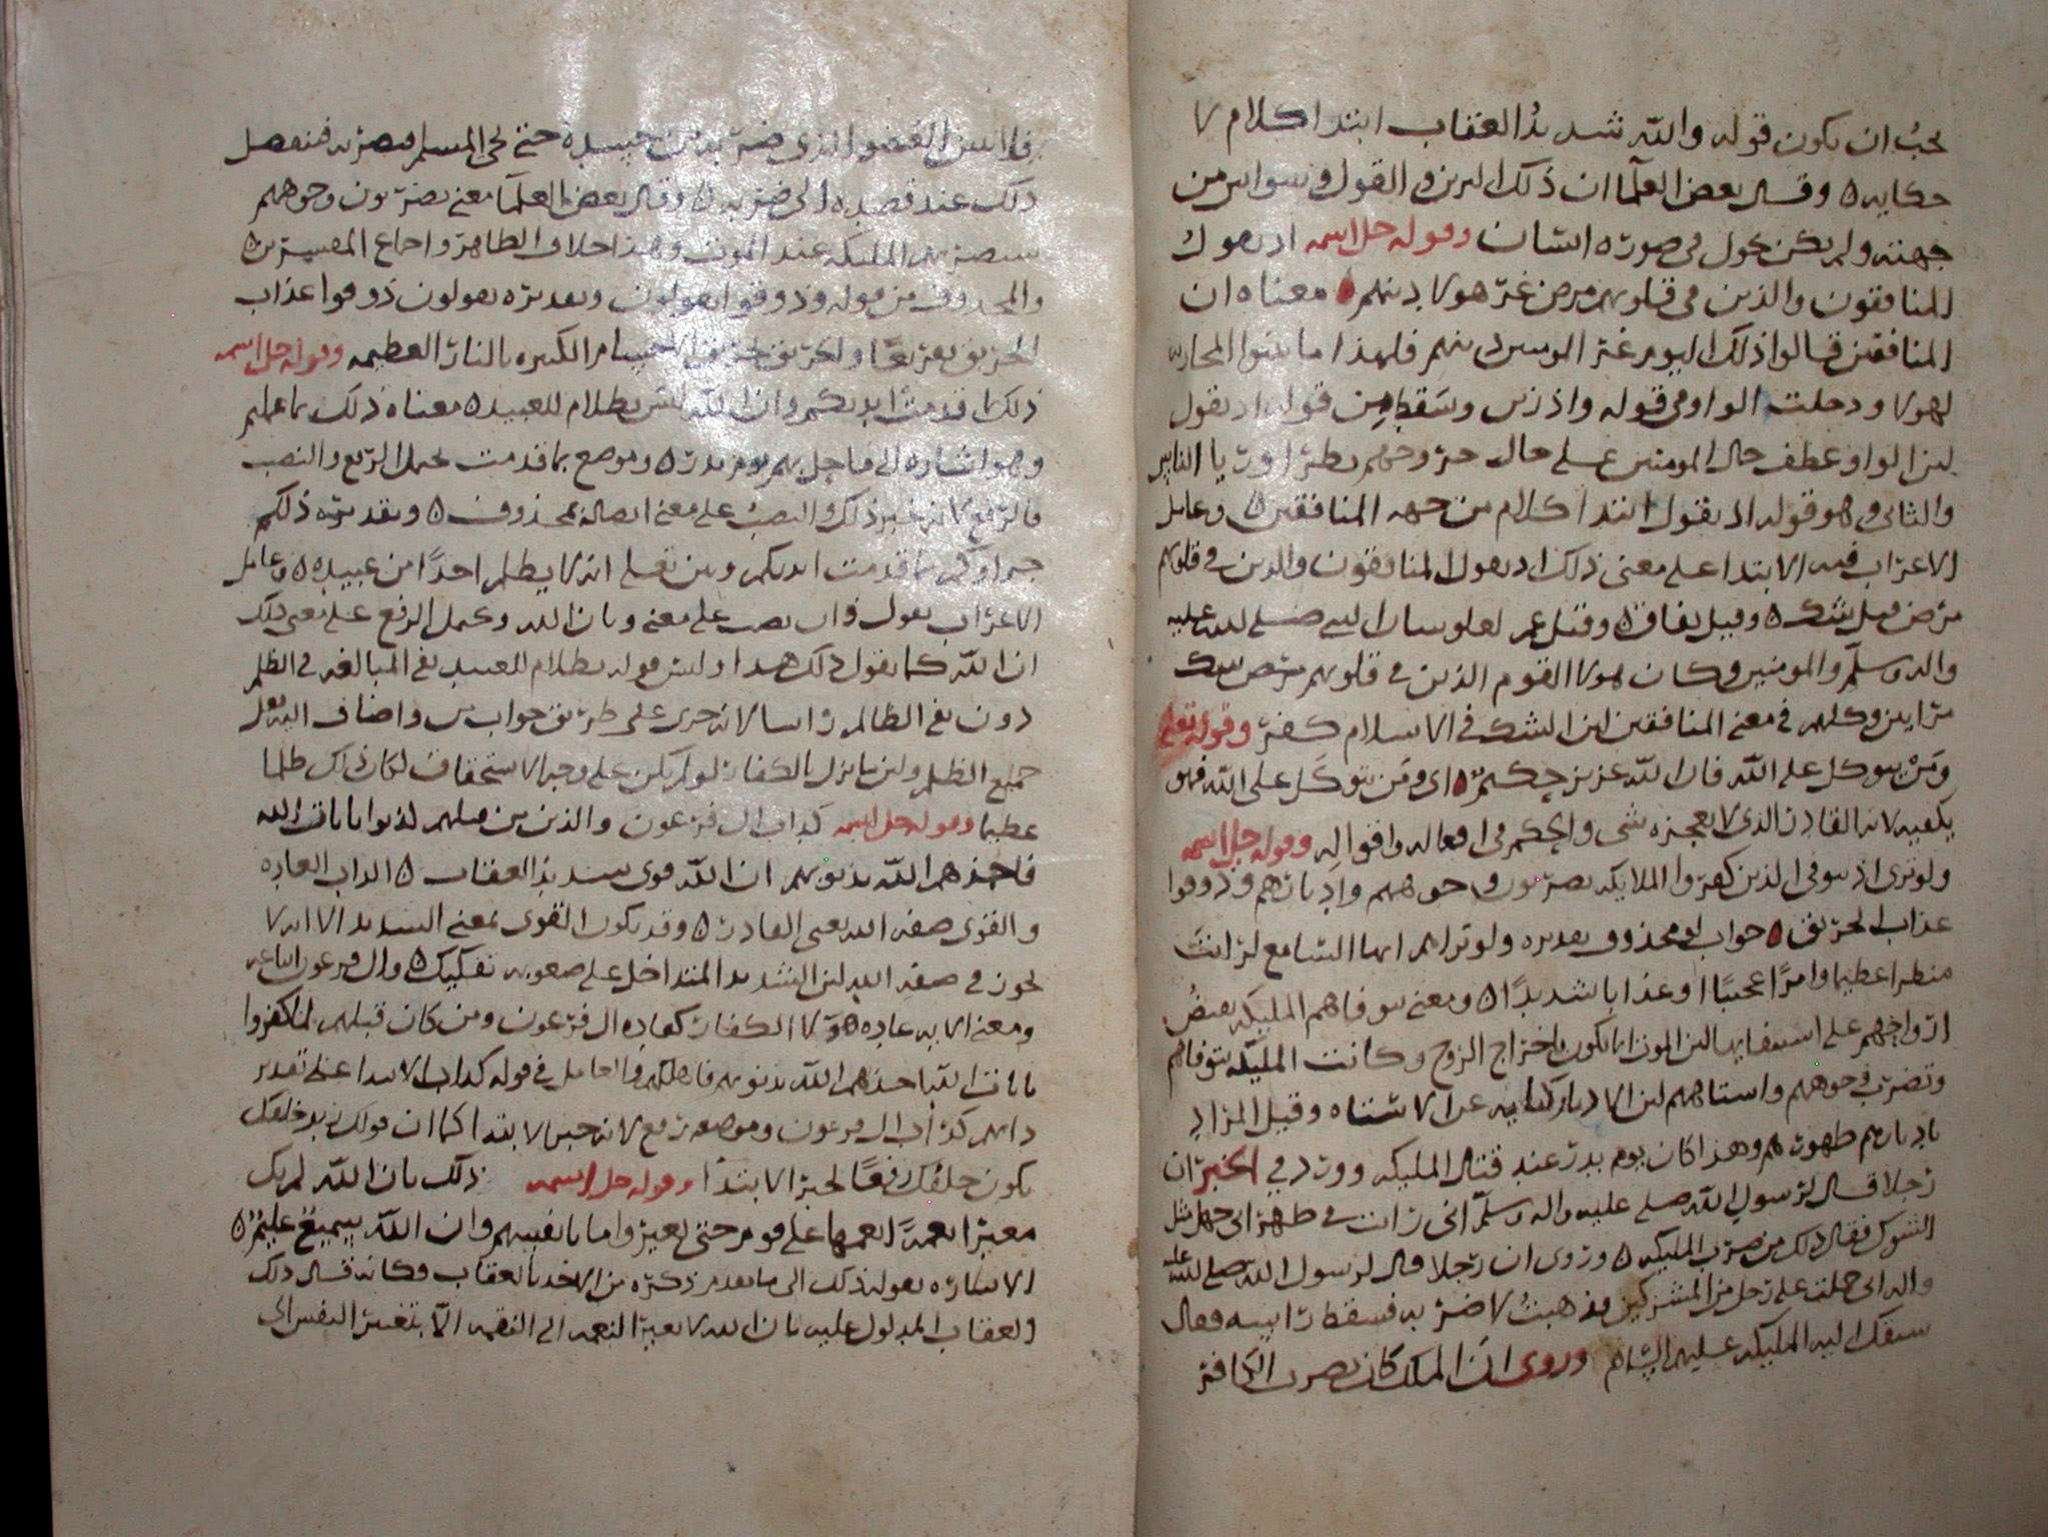 يجب ان يكون قوله والله شديد العقاب ابتدا كلام لا
حكايه ه وقال بعض العلما ان ذلك التزين في القول وسواس من
جهته ولم يكن يحول في صورة انسان وقوله جل اسمه اذ يقول
المنافقون والذين في قلوبهم مرض غر هولا دينهم ه معناه ان
المنافقين قالوا ذلك اليوم غر المومنين دينهم فلهذا ما بينوا المحاربه
لهولا ودخلت الواو في قوله واذ زين وسقط من قوله اذ يقول
لان الواو عطف حال المومنين على حال خروجهم بطرا وريا الناس
والثاني وهو قوله اذ يقول ابتدا كلام من جهه المنافقين ه وعامل
الاعراب فيه الابتدا على معنى ذلك اذ يقول المنافقون والذين في قلوبهم
مرض قيل شك ه وقيل نفاق ه وقيل عمر صلى الله عليه
واله وسلم والمومنين وكان هولا القوم الذين في قلوبهم مرض شك
مرايين وكلهم في معنى المنافقين لان الشك في الاسلام كفر وقوله تعالى
ومن يتوكل على الله فان الله عزيز حكيم ه اي ومن يتوكل على الله فهو
يكفيه لانه القادر الذي لا يعجزه شي والحكم في افعاله واقواله وقوله جل اسمه
ولو ترى اذ يتوفى الذين كفروا الملايكه يضربون وجوههم وادبارهم وذوقوا
عذاب الحريق ه جواب لو محذوف تقديره ولو تراهم ايها السامع لرايت
منظرا عظيما وامرا عجيبا او عذابا شديدا ه ومعنى يتوفاهم المليكه يقبض
ارواحهم على استيفايها لان الموت انما يكون باخراج الروح وكانت المليكه تتوفاهم
وتضرب وجوههم واستاههم لان الادبار كنايه عن الاستاه وقيل المراد
بادبارهم ظهورهم وهذا كان يوم بدر عند قتال المليكه وورد في الخبر ان
رجلا قال لرسول الله صلى عليه واله وسلم اني رايت في ظهر ابي جهل مثل
الشوك فقال ذلك من ضرب المليكه ه وروي ان رجلا قال لرسول الله صلى الله عليه
واله اني حملت على رجل من المشركين فذهبت لاضربه فسقط راسه فقال
سبقك اليه المليكه عليهم السلام وروي ان الملك كان يضرب الكافر
فاذا العضو الذي ضربه من جسده حتى يجي المسلم فيضربه فينفصل
ذلك عند قصده الى ضربه ه وقال بعض العلما معنى يضربون وجوههم
ستضربهم المليكه عند الموت وهذا خلاف الظاهر واجماع المفسرين ه
والمحذوف من قوله وذوقوا يقولون وتقديره يقولون ذوقوا عذاب
الحريق الكبيره بالنار العظيمه وقوله جل اسمه
ذلك بما قدمت ايديكم وان الله ليس بظلام للعبيد ه معناه ذلك بما عملتم
وهو اشاره الى ما حل بهم يوم بدر ه وموضع بما قدمت يحمل الرفع والنصب
فالرفع لانه خبر ذلك والنصب على معنى اتصاله بمحذوف ه وتقديره ذلكم
جزاوكم بما قدمت ايديكم وبان تعلم انه لا يظلم احدا من عبيده ه وعامل
الاعراب يقول في ان نصب على معنى وبان الله ويحمل الرفع على معنى ذلك
ان الله كما يقول ذلك هذا وليس قوله بظلام للعبيد نفي المبالغه في الظلم
دون نفي الظالم راسا لانه جرى على طريق جواب من اضاف اليه فعل
جميع الظلم ولان ما نزل بالكفار لو لم يكن على وجه الاستحقاق لكان ذلك ظلما
عظيما وقوله جل اسمه كداب ال فرعون والذين من قبلهم كفروا بايات الله
فاخذهم الله بذنوبهم ان الله قوي شديد العقاب ه الداب العاده
والقوي صفه الله يعني القادر ه وقد يكون القوي بمعنى الشديد الا انه لا
يجوز في صفه الله لان الشديد المتداخل على صعوبه تفكيك ه وال فرعون اتباعه
ومعنى الايه عاده هولا الكفار كعاده ال فرعون ومن كان قبلهم لما كفروا
بايات الله اخذهم الله بذنوبهم فاهلكهم والعامل في قوله كداب الابتدا على تقدير
دابهم كداب ال فرعون وموضعه رفع لانه خبر الابتدا كما ان قولك زيد خلفك
يكون خلفك رفعا لخبر الابتدا وقوله جل اسمه ذلك بان الله لم يك
مغيرا نعمة انعمها على قوم حتى يغيروا ما بانفسهم وان الله سميع عليم ه
الاشاره بقوله ذلك الى ما تقدم ذكره من الاخذ بالعقاب وكانه قال ذلك
العقاب المدلول عليه بان الله لا يغير النعمه الى النقمه الا بتغير النفس الى